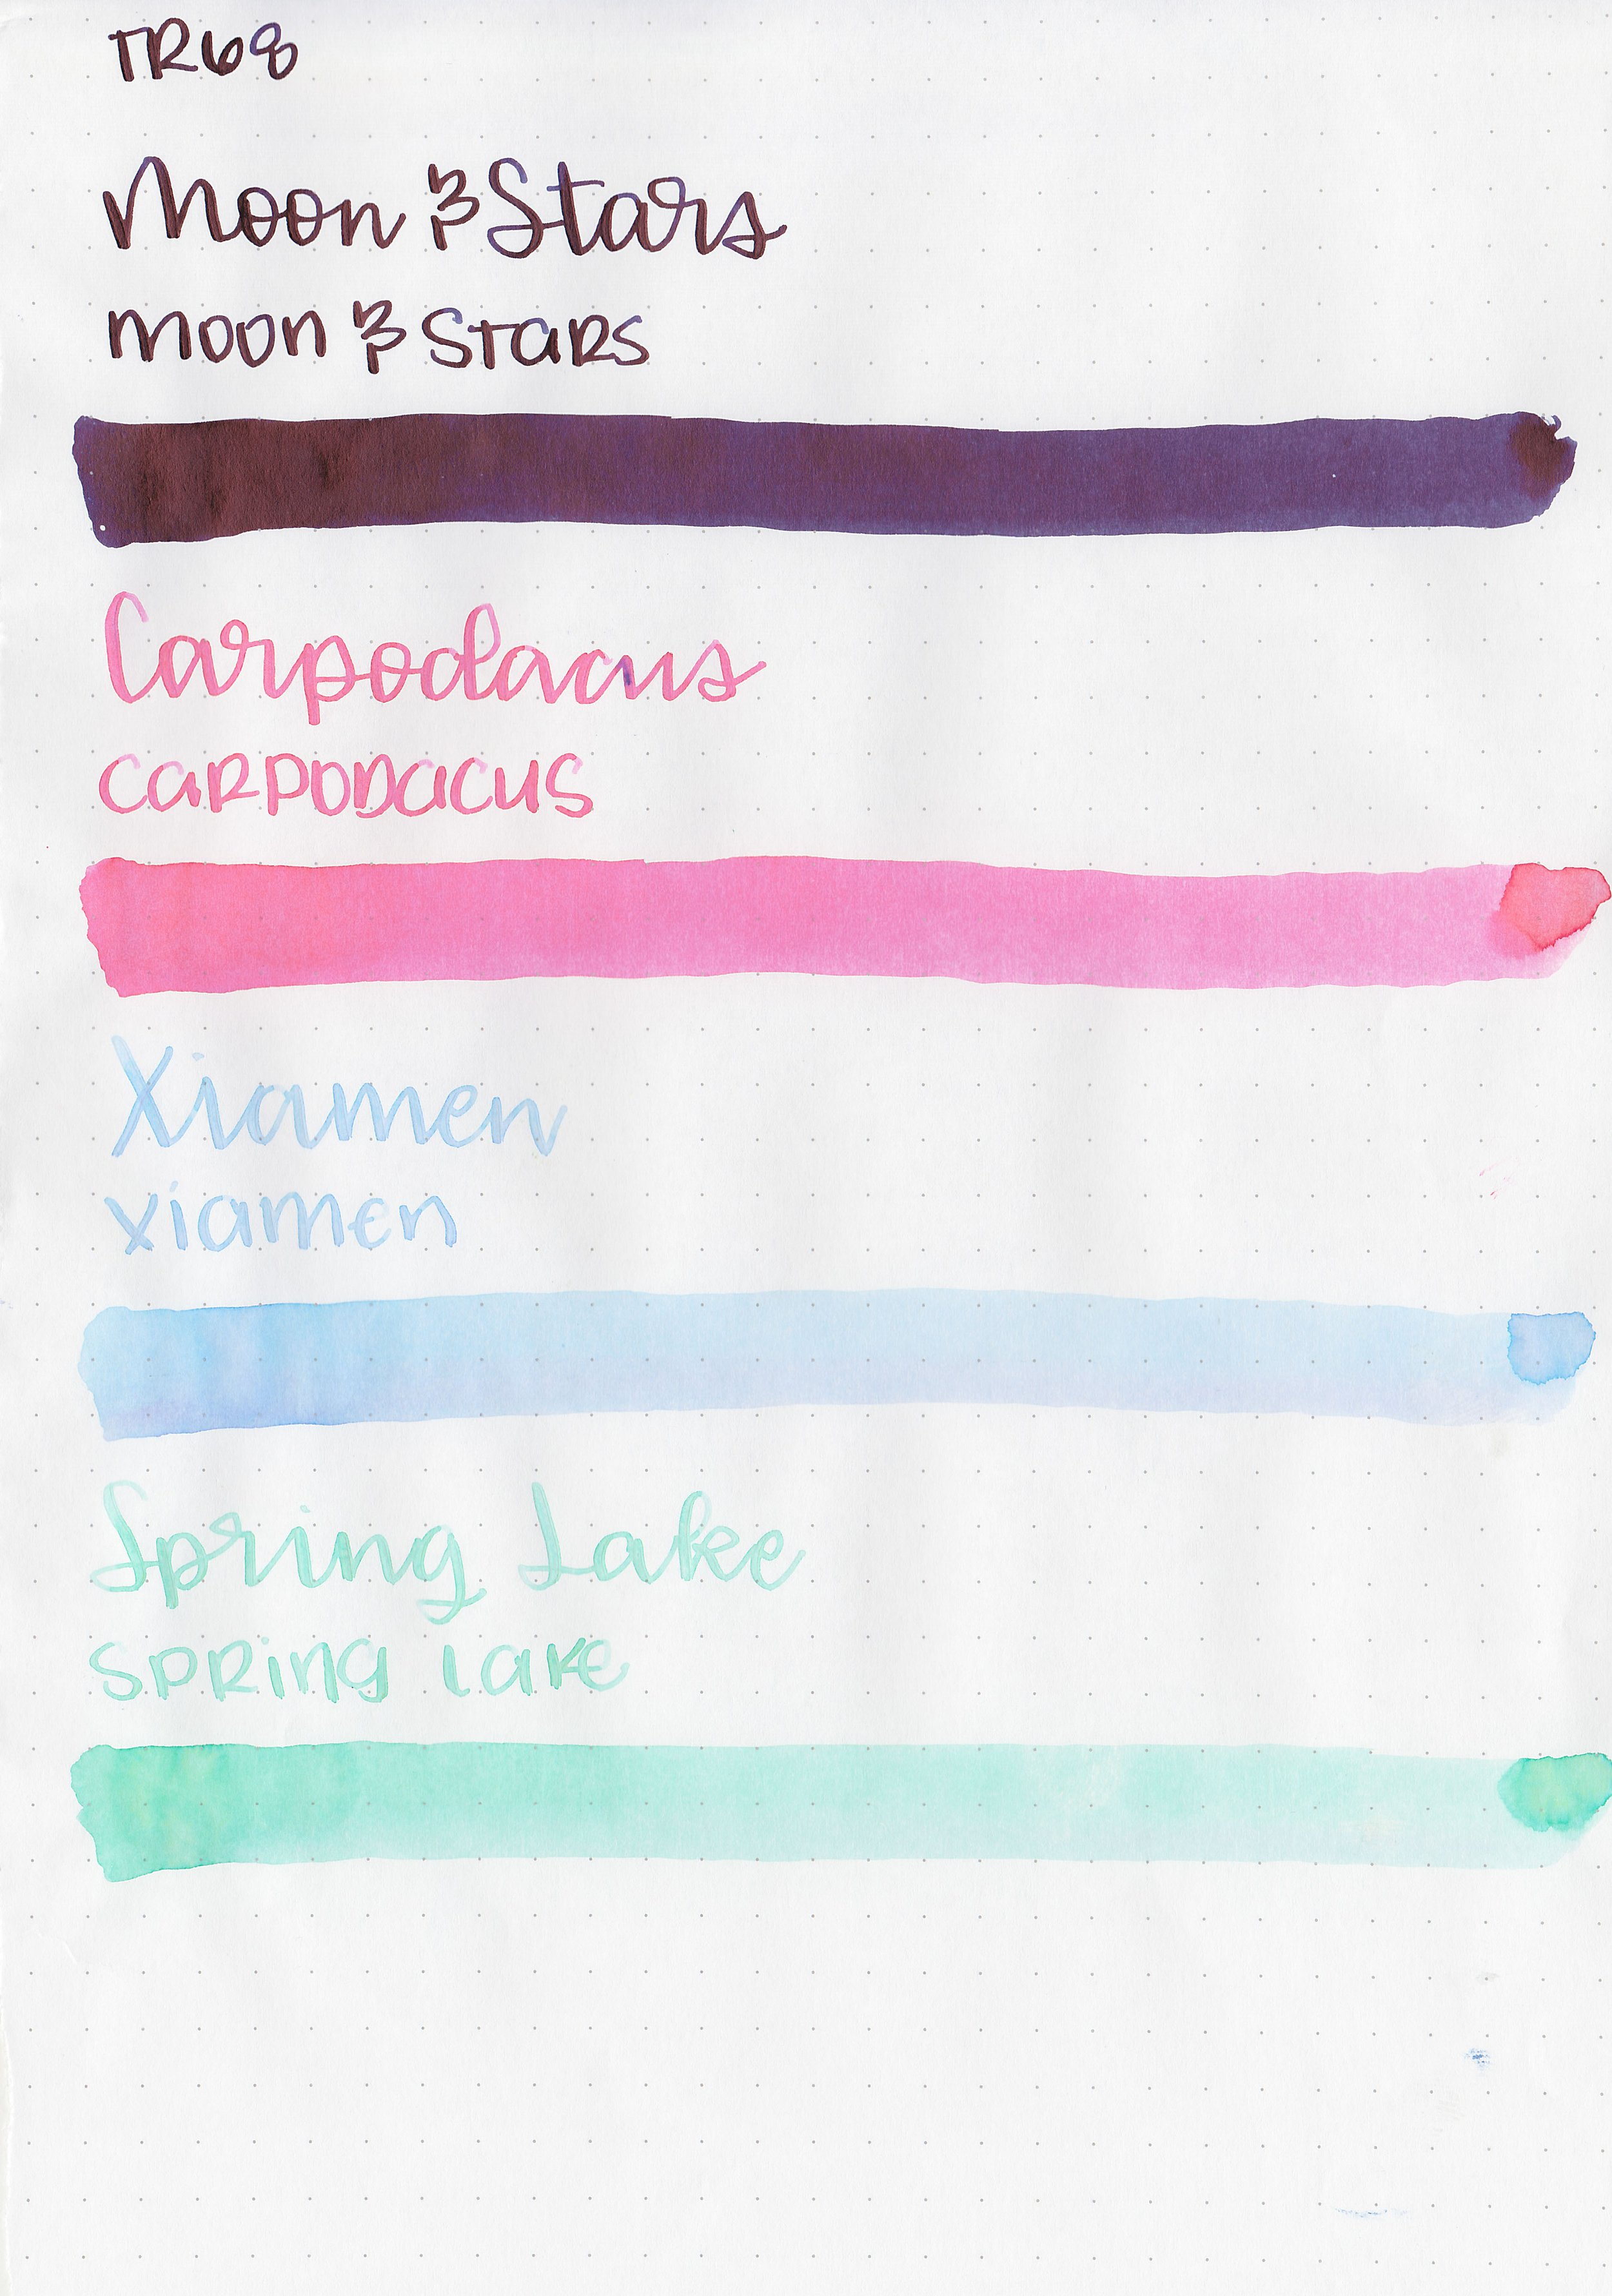 TR68
Moon & Stars
moon & Stars
Carpodacus
CARPODACUS
Xiamen
xiamen
Spring Lake
SPRING LAKE